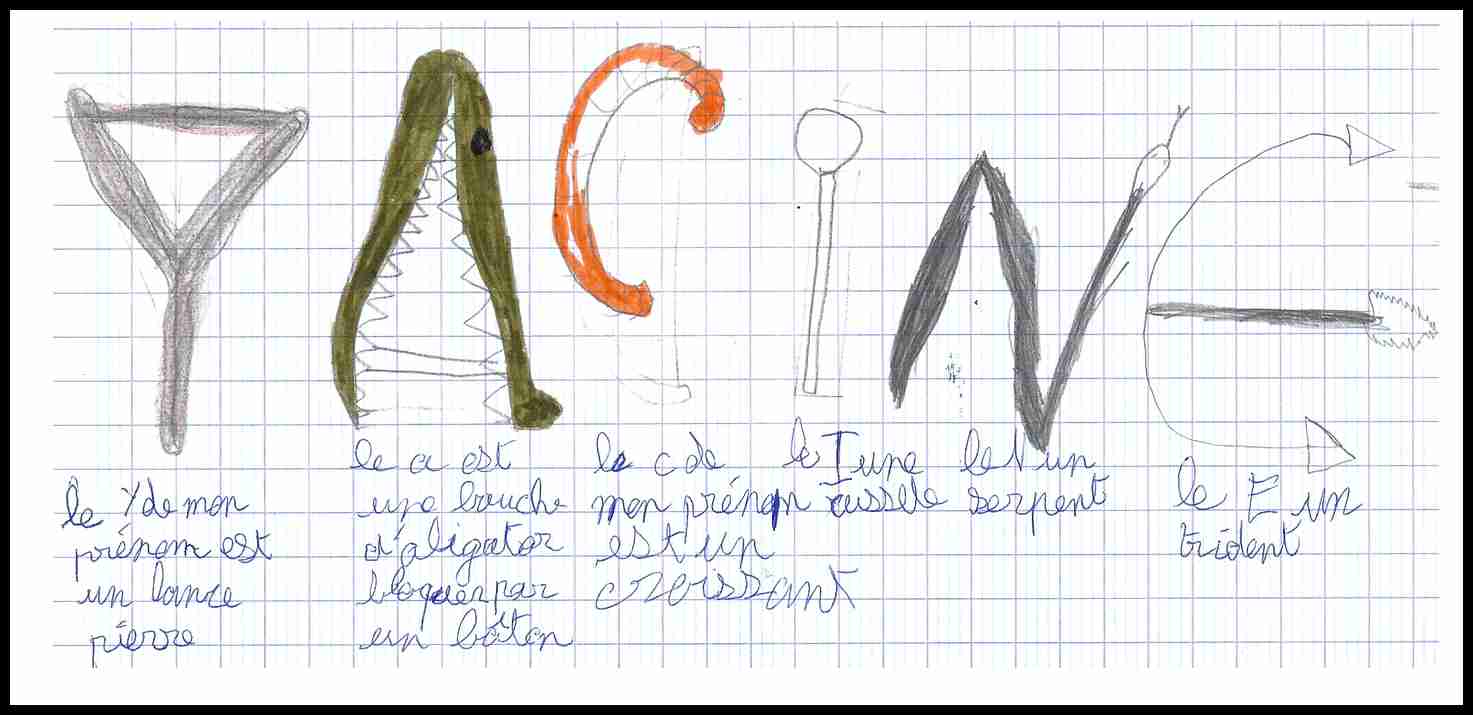 YACiNE
le Y de mon
prénom est
un lance
pierre
le a est
une bouche
d'aligator
bloquer par
un bâton
le c de
mon prénom
est un
croissant
le I une
le N un
serpent
le E un
trident